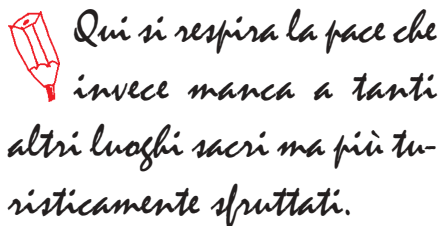 Qui si respira la pace che
invece manca a tanti
altri luoghi sacri ma più tu-
risticamente sfruttati.